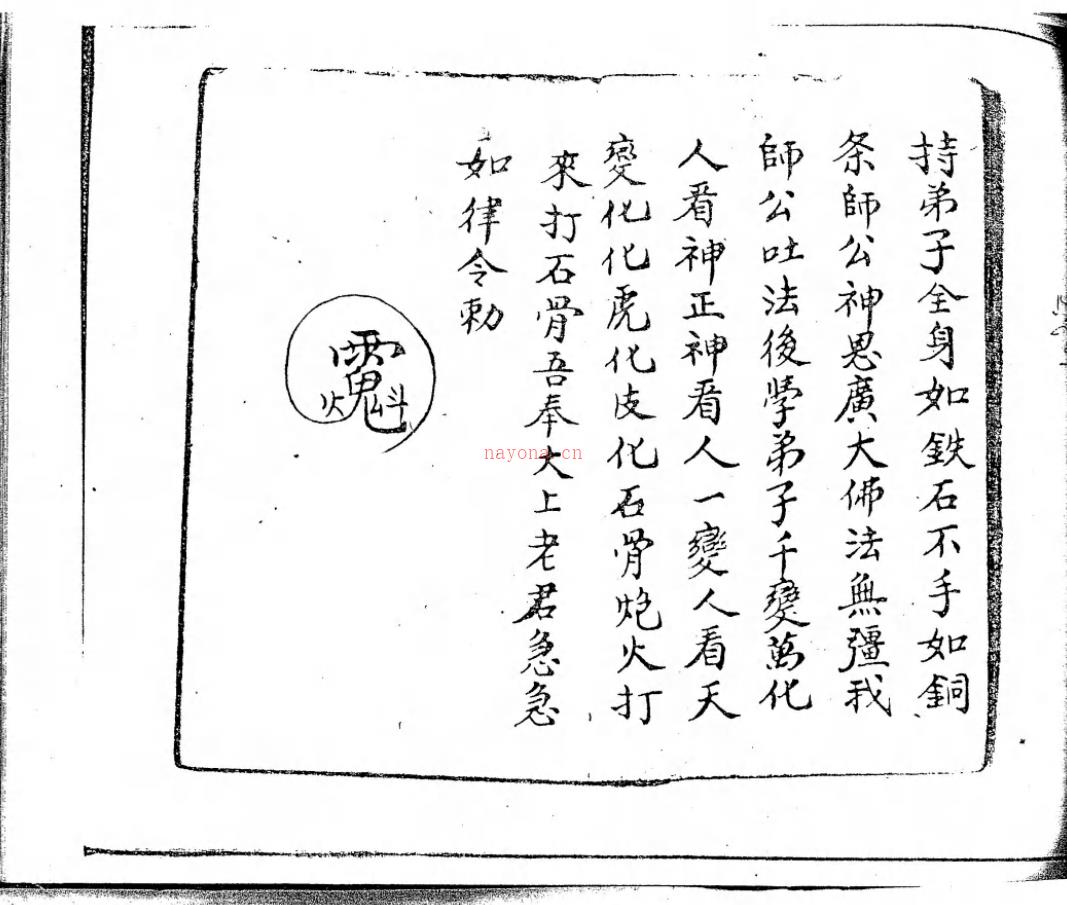 持弟子全身如鉄石不手如銅
条師公神恩廣大佛法無彊我
師公吐法後學弟子千變萬化
人看神正神看人一變人看天
變化化虎化皮化石骨炮火打
來打石骨吾奉大上老君急急
如律令勅
nayona.cn